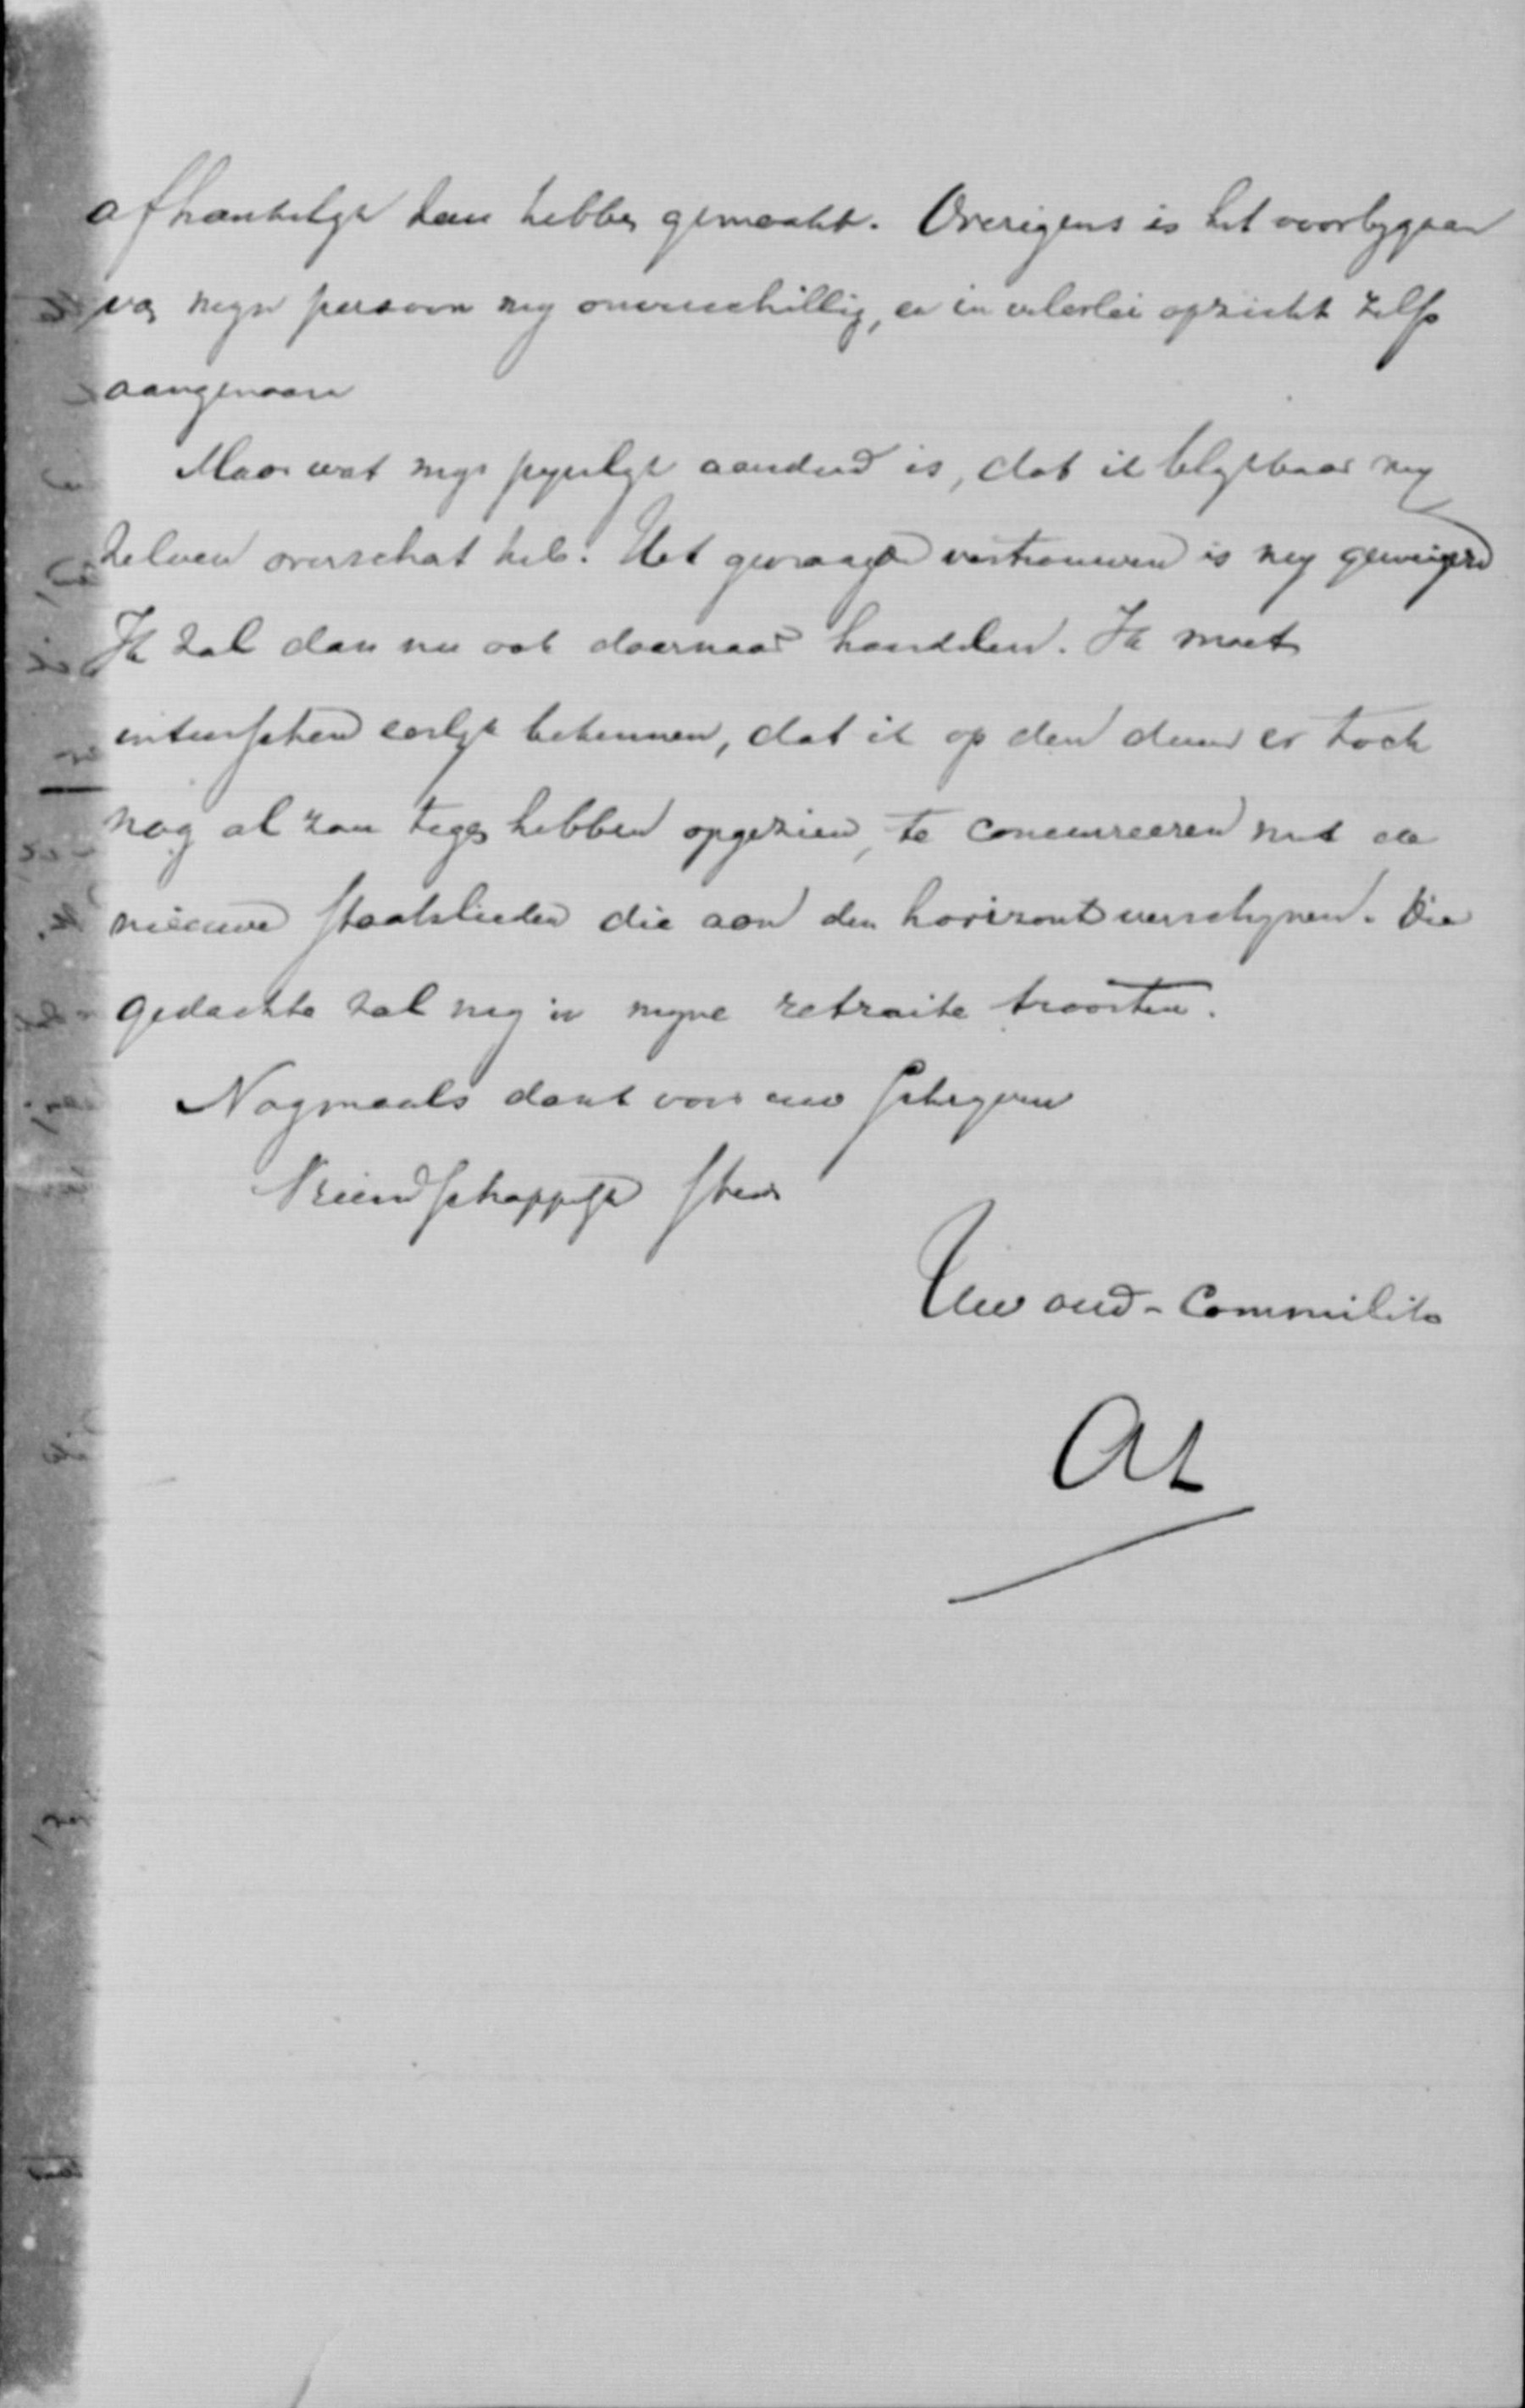 afhankelyk kan hebben gemaakt. Overigens is het voorbygaan
van mijn persoon my onverschillig, en in velerlei opzicht zelfs
aangenaam
Maar wat my pynlyk aandeed is, dat ik blykbaar my
zelven overschat heb. Het gevraagde vertrouwen is my geweigerd
Ik zal dan nu ook daarnaar handelen. Ik moet
intusschen eerlyk bekennen, dat ik op den duur er toch
nog al zou tegen hebben opgezien, te concurreeren met de
nieuwe staatslieden die aan den horizont verschynen. Die
gedachte zal my in myne retraite troosten.
Nogmaals dank voor uw schryven
Vriendschappelyk steeds
Uw oud-Commilito